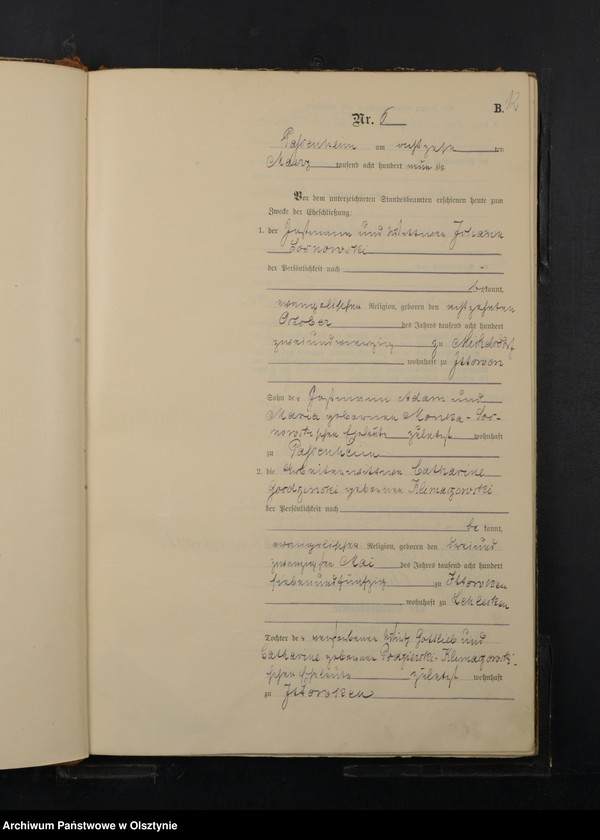 B. 12
Nr. 5
Passenheim am achtzehn ten
Maerz tausend acht hundert neun zig.
Vor dem unterzeichneten Standesbeamten erschienen heute zum
Zwecke der Eheschließung:
1. der Instmann und Wittwer Johann
Sosnowski
der Persönlichkeit nach
be kannt,
evangelischer Religion, geboren den achtzehnten
October des Jahres tausend acht hundert
zweiundvierzig zu
wohnhaft zu
Sohn de r Instmann Adam und
Maria geborenen Monka-Sos-
nowskischen Eheleute zuletzt wohnhaft
zu Passenheim
2. die Arbeiterwittwe Catharine
geborene Klimaszewski
der Persönlichkeit nach
be kannt,
evangelischer Religion, geboren den dreiund
zwanzigsten Mai des Jahres tausend acht hundert
siebenundfünfzig zu
wohnhaft zu
Tochter de r verstorbenen Gottlieb und
Catharine geborenen
schen Eheleute zuletzt wohnhaft
zu
Archiwum Państwowe w Olsztynie